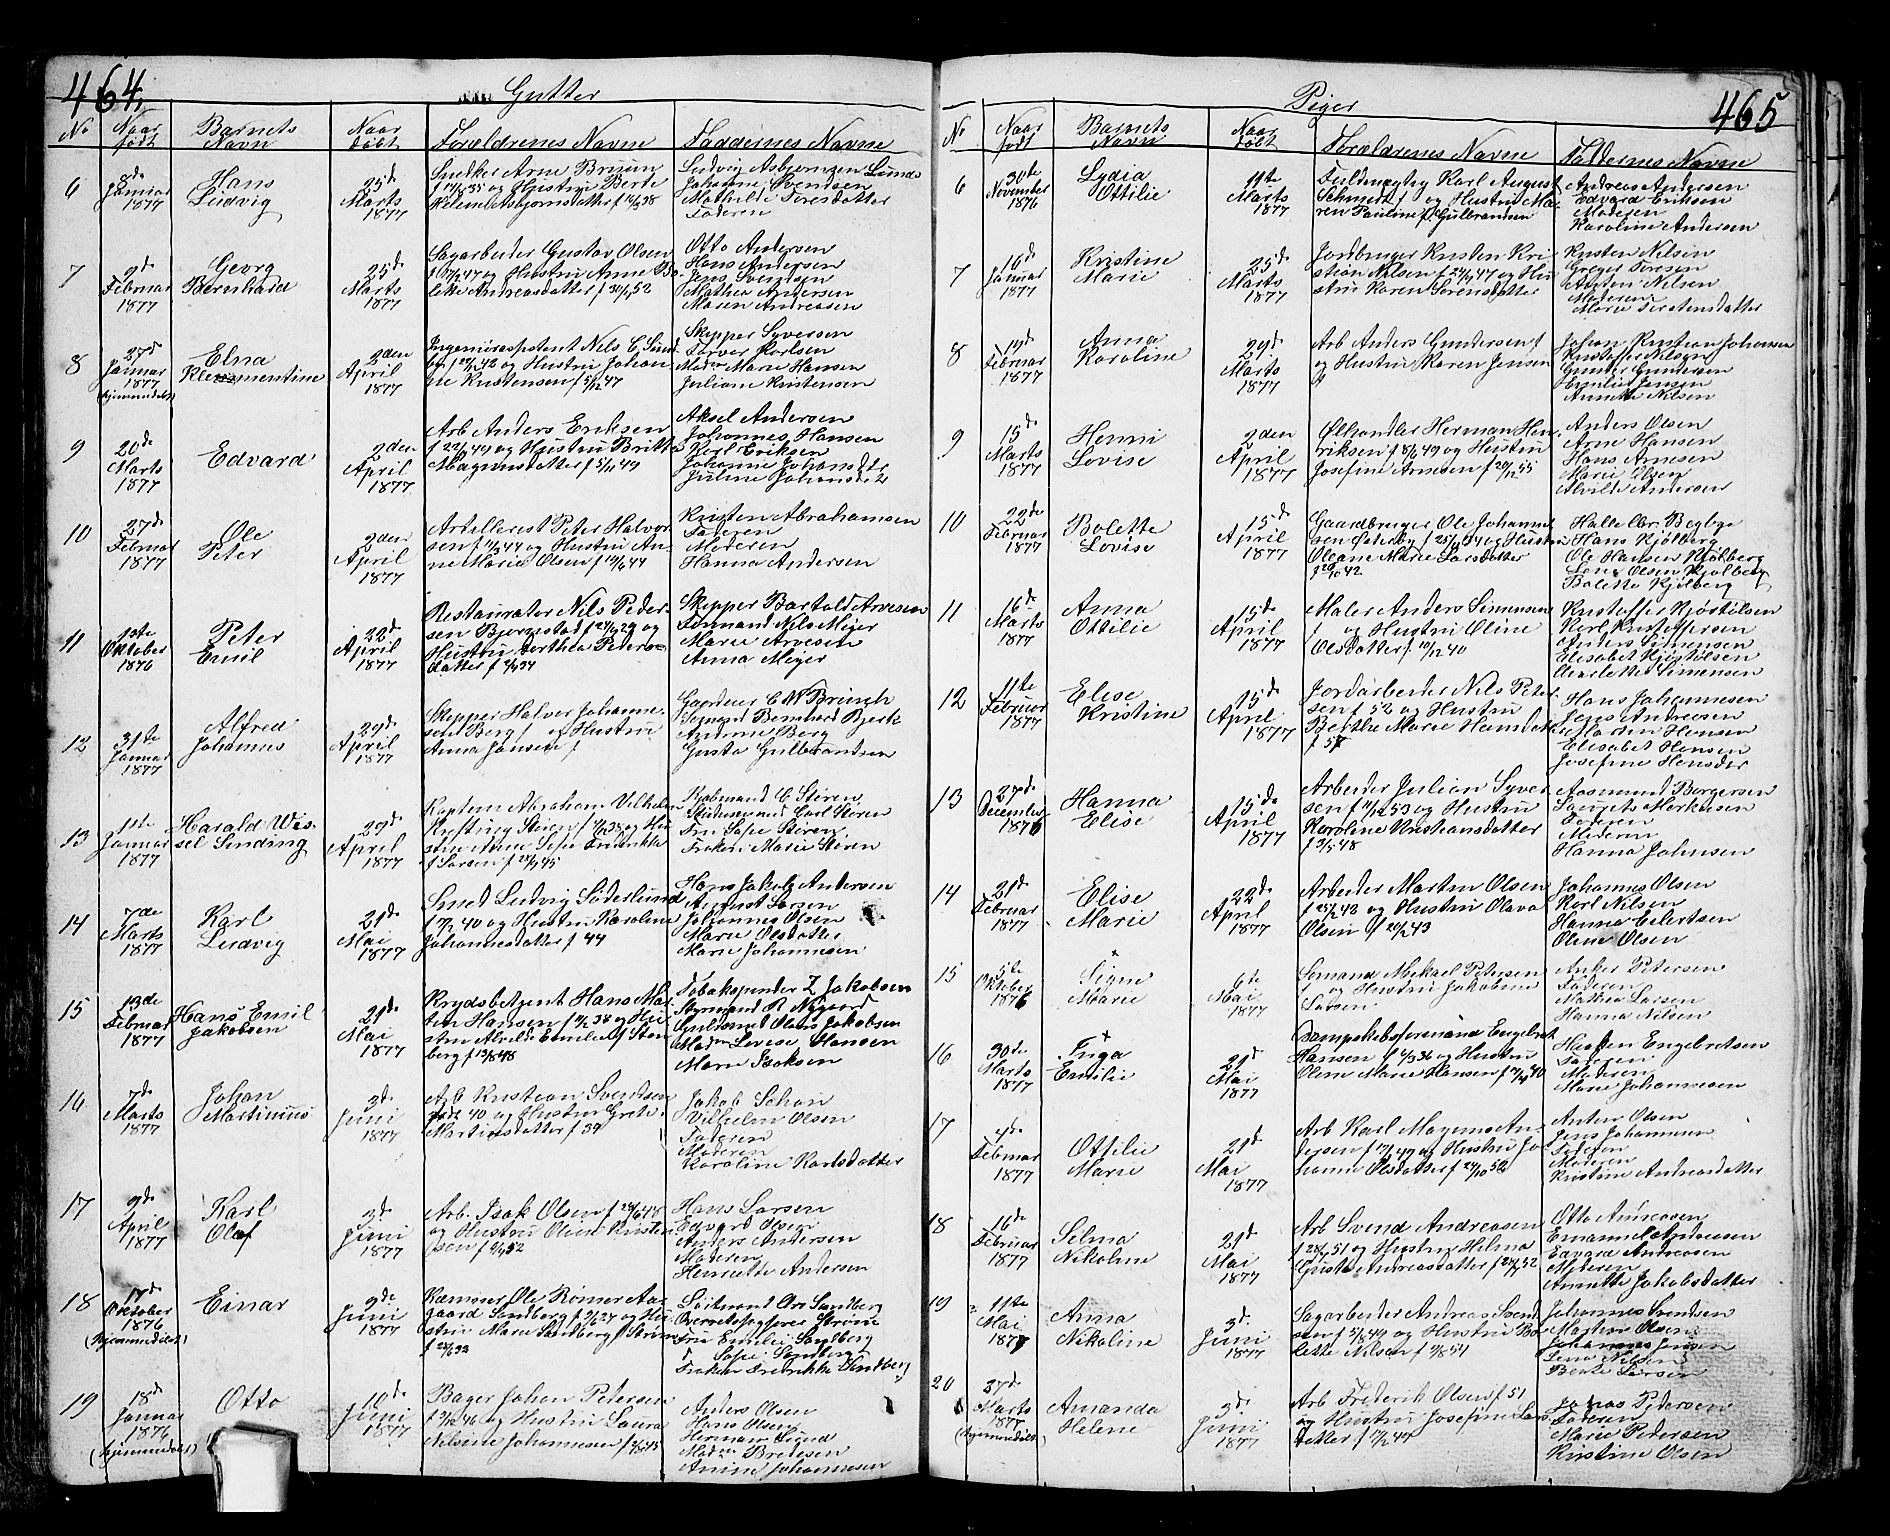 464.
Gutter
No
Naar født
Barnets Navn
Naar døbt
Forældrenes Navne
Faddernes Navne
6
8de Januar 1877
Hans Ludvig
25de Marts 1877
Snedker Arne Bruun
og Hustru Berte
Ludvig Asbjørnsen Lunde
Johanne Svendsen
Mathilde Toresdatter
Faderen
7
2de Februar 1877
Georg Bernhard
25de Marts 1877
Sagarbeider Gustav Olsen
og Hustru Anne Bo-
lette Andreasdatter f 30/4 52
Otto Andersen
Hans Andersen
Jens Svendsen
Mathea Andersen
Maren Andreasen
8
27de Januar 1877
(hjemmedøbt)
Elna Klementine
2den April 1877
og Hustru Johan-
ne Kristensen f 5/12 47
Skipper Syversen
Torvar Karlsen
Madm Marie Hansen
Juliane Kristensen
9
20de Marts 1877
Edvard
2den April 1877
Arb Anders Eriksen
f 22/4 49 og Hustru Britte
Magnusdatter f 5/11 49
Aksel Andersen
Johannes Hansen
Karl Eriksen
Johanne Johansdtr
Juline Johansdtr
10
27de Februar 1877
Ole Peter
2den April 1877
Artillerist Peter Halvor-
sen f 11/2 44 og Hustru An-
ne Marie Olsen f 13/6 44
Kristen Abrahamsen
Faderen
Moderen
Hanna Andersen
11
13te Oktober 1876
Peter Emil
22de April 1877
Restauratør Nils Peder-
sen Bjørnstad f 24/9 29 og
Hustru Dorthea Peders-
datter f 4/9 34
Skipper Bartold Arvesen
Formand Nils Meyer
Marie Arvesen
Anna Meyer
12
31te Januar 1877
Alfred Johannes
29de April 1877
Skipper Halvor Johanne-
sen Berg f og Hustru
Anna Jansen f
Gaardeier C M Brinch
Sogned Bernhard Bjerk
Andrine Berg
Gusta Gulbrandsen
13
1ste Januar 1877
Harald Wes-
sel Sinding
29de April 1877
Kaptein Abraham Vilhelm
Kjøbmand C Stören
Student Carl Stören
Fru Sofie Stören
Frøken Marie Stören
14
7de Marts 1877
Karl Ludvig
21de Mai 1877
Smed Ludvig Söderlund
f 17/2 40 og Hustru Karoline
Johannesdatter f 44
Hans Jakob Andersen
August Larsen
Johannes Olsen
Marie Olsdatter
Marie Johannesen
15
13de Februar 1877
Hans Emil Jakobsen
21de Mai 1877
Krydsbetjent Hans Mar-
tin Hansen f 9/2 38 og Hu-
stru Alvilde Emilie f Sten-
berg f 13/8 48
Tobakspinder Z Jakobsen
Styrmand R Nygaard
Guldsmed Olaus Jakobsen
Madm Lovise Hansen
Marie Isaksen
16
7de Marts 1877
Johan Martinius
3de Juni 1877
Arb Kristian Svendsen
født 40 og Hustru Grete
Martinsdatter f 39
Jakob Schau
Vilhelm Olsen
Faderen
Moderen
Karoline Karlsdatter
17
9de April 1877
Karl Olaf
3de Juni 1877
Arb. Isak Olsen f 28/6 48
og Hustru Oline Kristen-
sen f 9/2 52
Hans Larsen
Edvard Olsen
Anders Andersen
Moderen
Henriette Andersen
18
17de Oktober 1876
(hjemmedøbt)
Einar
9de Juni 1877
Kæmner Ole Rømer Aa-
gaard Sandberg f 2/6 27 og Hu-
stru Marie Sandberg f Strøm
Frøken Fredrikke Sandberg
Fru Emilie Sandberg
19
18de Januar 1876
(hjemmedøbt)
Otto
10de Juni 1877
Bager Johan Petersen
f 9/12 46 og Hustru Laura
Nilsine Johannesen
Anders Olsen
Hans Olsen
Herman Lund
Madm Bredesen
Anine Johannesen
465
Piger
No
Naar født
Barnets Navn
Naar døbt
Forældrenes Navne
Faddernes Navne
6
30te November 1876
Lydia Ottilie
11te Marts 1877
Fuldmægtig Karl August
Schmidt f og Hustru Ma-
ren Pauline f Gulbrandsen
Andreas Andersen
Edvard Eriksen
Moderen
Karoline Andersen
7
16de Januar 1877
Kristine Marie
25de Marts 1877
Jordbruger Kristen Kri-
stian Nilsen f 24/4 47 og Hu-
stru Karen Sørensdatter
Kristen Nilsen
Greger Toresen
Anton Nilsen
Moderen
8
19de Februar 1877
Anna Karoline
29de Marts 1877
Arb Anders Gundersen f
og Hustru Karen Jensen
Johan Kristian Johansen
Kristoffer Nilsen
Gunder Gundersen
Emilie Jensen
Annette Nilsen
9
15de Marts 1877
Henni Lovise
2den April 1877
Ølhandler Herman Hen-
riksen f 8/6 49 og Hustru
Josefine Arnesen f 20/12 55
Anders Olsen
Arne Hansen
Hans Arnesen
Marie Olsen
Alvilde Andersen
10
22de Februar 1877
Bolette Lovise
15de April 1877
Gaardbruger Ole Johanne-
sen Østerby f 25/11 34 og Hustru
Oleane Marie Larsdatter
f 20/10 42
Halle Ibr. Begby
Hans Kjølberg
Ole Hansen Kjølberg
Lene Olsen Kjølberg
Bolette Kjølberg
11
16de Marts 1877
Anna Ottilie
15de April 1877
Maler Anders Simensen
f og Hustru Oline
Olsdatter f 10/12 40
Kristoffer Kjøstelsen
Karl Kristoffersen
Anders Simensen
Elisabet Kjøstelsen
Charlotte Simensen
12
11te Februar 1877
Elise Kristine
15de April 1877
Jordarbeider Nils Peter-
sen f 52 og Hustru
Berthe Marie Hansdatter
f 57
Hans Johannesen
Jens Andresen
Martin Hansen
Elisabet Hansen
Josefine Hansdtr
13
27de December 1876
Hanna Elise
15de April 1877
Arbeider Julian Syver-
sen f 11/12 53 og Hustru
Karoline Kristiansdatter
f 3/5 48
Aasmund Børgersen
Laurits Markusen
Faderen
Moderen
Hanna Johnsen
14
21de Februar 1877
Elise Marie
22de April 1877
Arbeider Martin Olsen
f 25/2 48 og Hustru Olava
Olsen f 20/2 43
Johannes Olsen
Karl Nilsen
Hanna Eilertsen
Oline Olsen
15
5te Oktober 1876
Signe Marie
6te Mai 1877
Sømand Mikael Petersen
f og Hustru Jakobine
Larsen
Anker Petersen
Faderen
Mathea Larsen
Hanna Nilsen
16
30te Marts 1877
Inga Emilie
21de Mai 1877
Dampskibsformand Engelbret
Hansen f 4/3 36 og Hustru
Oline Marie Hansen
Kristen Engelbretsen
Faderen
Moderen
Marie Johannesen
17
4de Februar 1877
Ottilie Marie
21de Mai 1877
Arb Karl Magnus An-
dersen f 17/2 49 og Hustru Jo-
hanne Olsdatter f 24/10 52
Anton Olsen
Jens Johannesen
Faderen
Moderen
Kristine Andreasdatter
18
16de Februar 1877
Selma Nikoline
21de Mai 1877
Arb Svend Andreasen
og Hustru Helma
Gusta Andreasdatter
Otto Andreasen
Emanuel Andreasen
Edvard Andreasen
Moderen
Annette Jakobsdatter
19
11te Mai 1877
Anna Nikoline
3de Juni 1877
Sagarbeider Andreas Svend-
sen f 5/8 49 og Hustru Bo-
lette Nilsen f 9/8 54
Johannes Svendsen
Martin Olsen
Johannes Jensen
Lena Nilsen
Beate Larsen
20
27de Marts 1877
(hjemmedøbt)
Amanda Helene
3de Juni 1877
Arb Frederik Olsen f 51
og Hustru Josefine Lars-
datter f 17/2 47
Johas Pedersen
Faderen
Marie Pedersen
Kristine Olsen